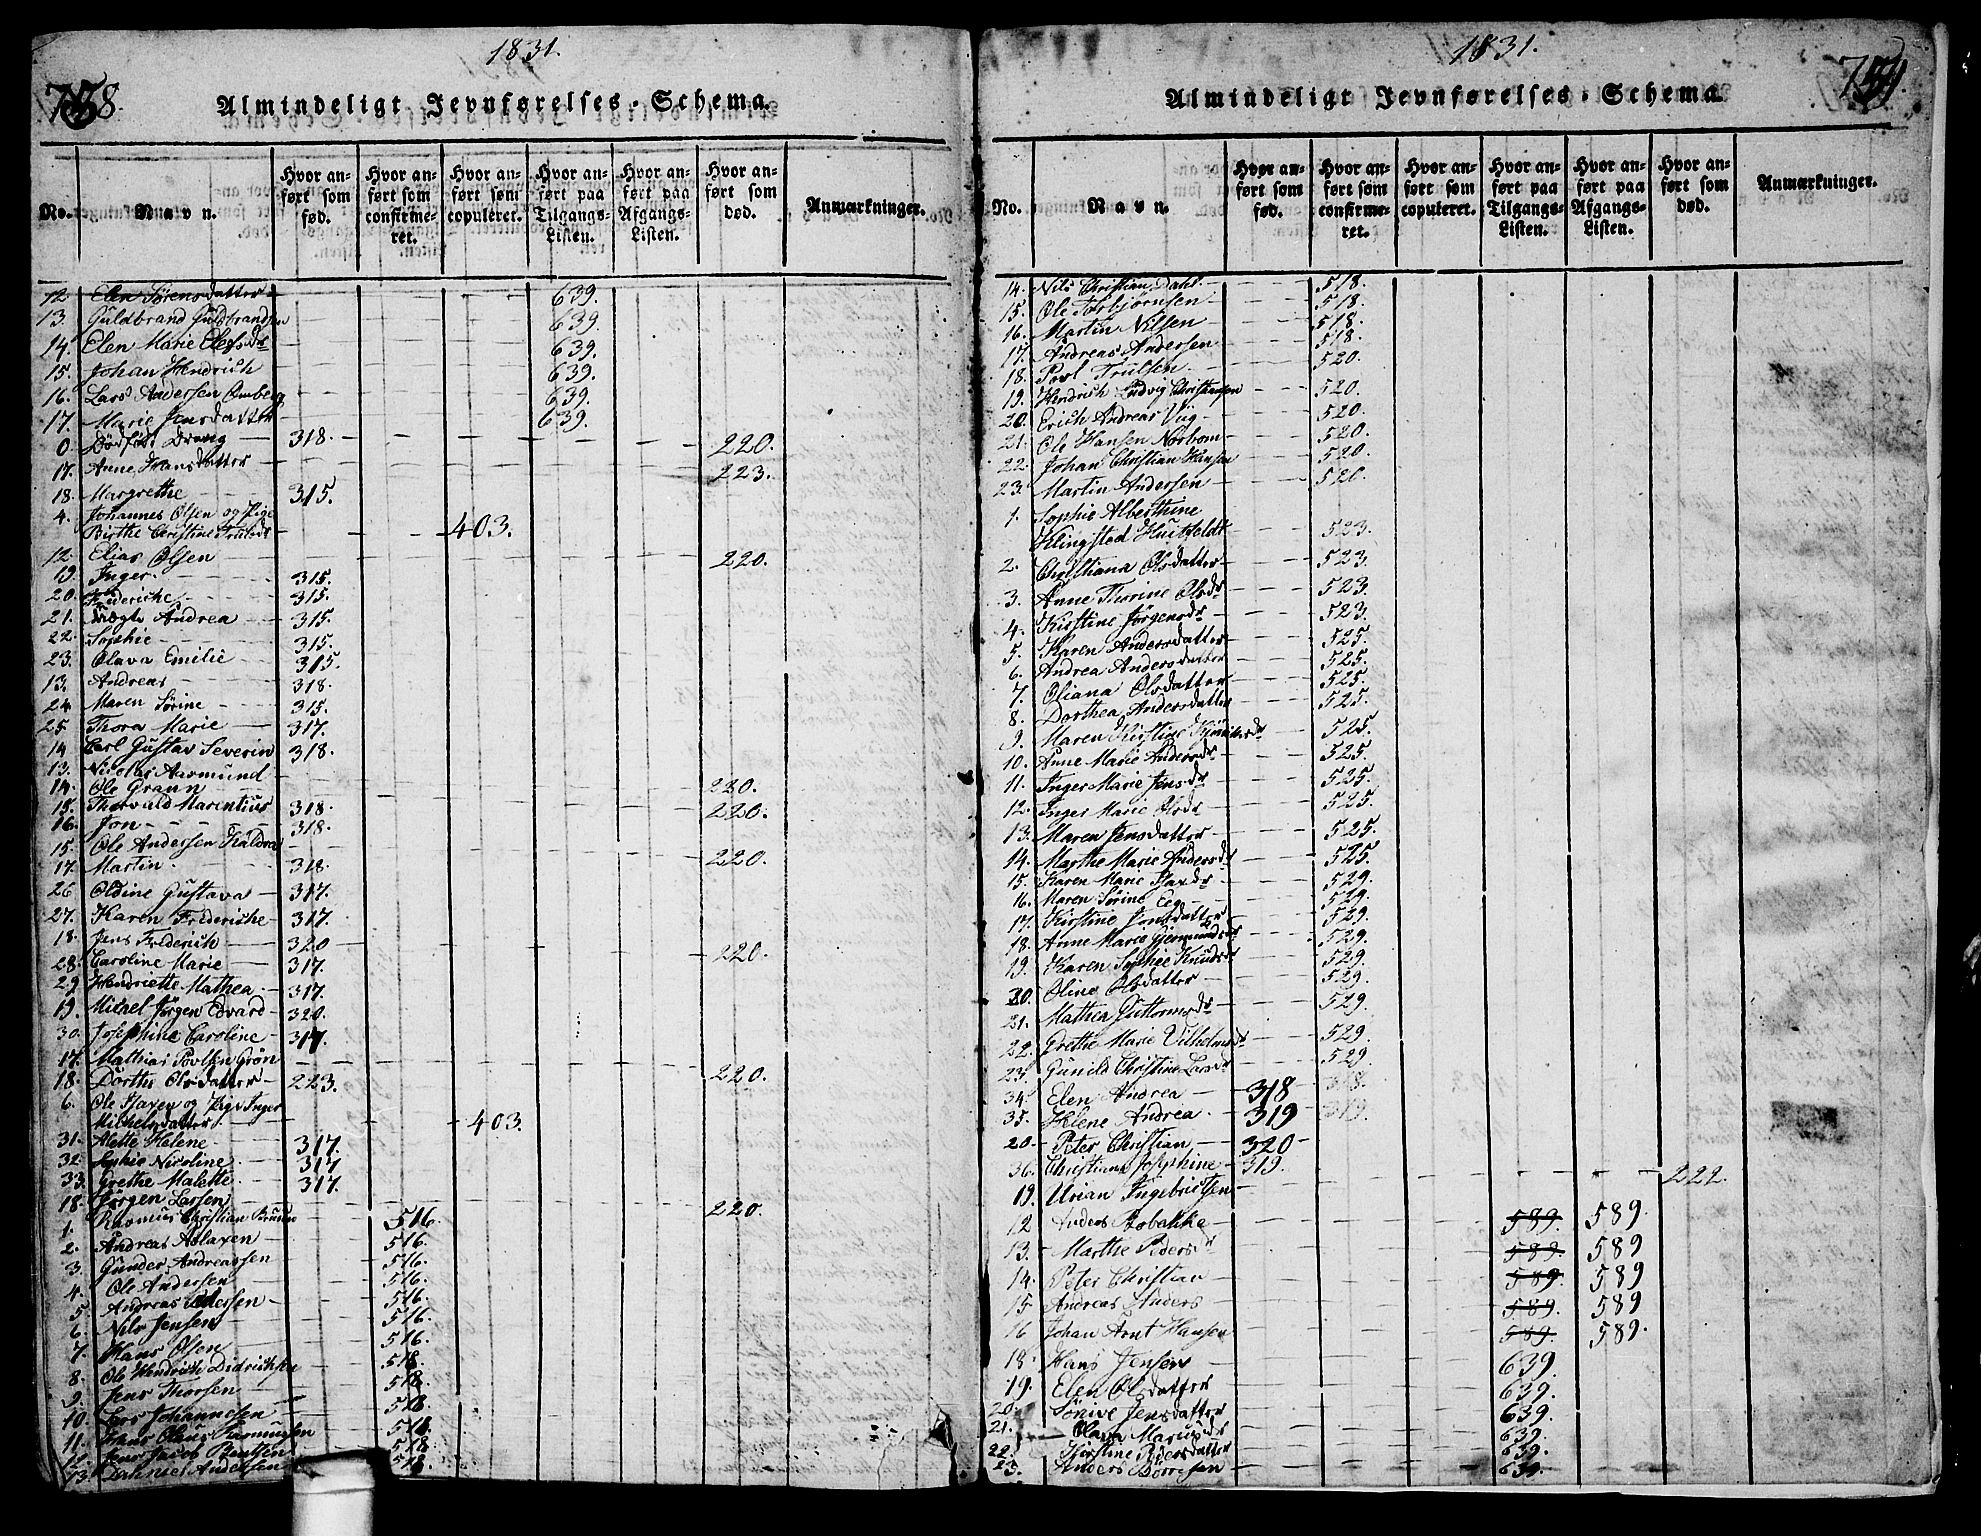 1831.
758.
Almindeligt Jevnførelses-Schema.
No. Navn. Hvor anført som fød. Hvor anført som confirmeret. Hvor anført som copuleret. Hvor anført paa Tilgangs-Listen. Hvor anført paa Afgangs-Listen. Hvor anført som død. Anmærkninger.
12 Elen Sørensdatter 639.
13. Guldbrand Guldbrandsen 639.
14. Elen Marie 639.
15. Johan Hendrich 639.
16. Lars Andersen 639.
17. Marie Jensdatter 639.
0. Dødfød Dreng 318. 220.
17. Anne Hansdatter 223.
18. Margrethe 315.
4. Johannes Olsen og Pige
Birthe Christine 403.
12. Elias Olsen 220.
19. Inger 315.
20. Frederiche 315.
21. Andrea 315.
22. Sophie 315.
23. Olava Emilie 315.
13. Andreas 318.
24 Maren Sørine 315.
25 Thora Marie 317.
14 Carl Gustav Severin 318.
13. Nicolai Aamund 220.
14. Ole Graun 220.
15. Thorvald Marentius 318.
16. Jon 318.
15. Ole Andersen 220.
17. Martin 318
26 Oldine Gustava 317.
27. Karen Frederiche 317.
18. Jens Frederich 320 220.
28. Caroline Marie 317.
29 Hendriette Mathea 317.
19. Mikael Jørgen Edvard 320.
30. Josephine Caroline 317.
17. Mathias Povlsen Grøn 220.
18. Dorthe Olsdatter 223.
6. Ole Saxen og Pige Inger
Mickelsdatter 403.
31. Alette Helene 317.
32. Sophie Nicoline 317
33. Grethe Malette 317.
18. Jørgen Larsen 220.
1. Rasmus Christian 516.
2. Andreas Aslaxen 516.
3. Gunder Andreassen 516.
4. Ole Andersen 516.
5. Andreas 516.
6. Nils Jensen 516.
7. Hans Olsen 516.
8. Ole Hendrich Didrichsen 518.
9. Jens Thorsen 518.
10. Lars Johannesen 518.
11. Olaus Rasmussen 518.
12. Jacob 518.
13. Daniel Andersen 518
1831.
759.
Almindeligt Jevnførelses-Schema.
No. Navn. Hvor anført som fød. Hvor anført som confirmeret. Hvor anført som copuleret. Hvor anført paa Tilgangs-Listen. Hvor anført paa Afgangs-Listen. Hvor anført som død. Anmærkninger.
14. Nils Christian Dahl 518.
15. Ole Torbjørnsen 518.
16. Martin Nilsen 518.
17. Andreas Andersen 518.
18. Povl Trulsen 520.
19. Hendrich Ludvig Christiansen 520.
20. Erich Andreas Viig 520.
21. Ole Hansen Norbom 520.
22. Johan Christian Hansen 520.
23. Martin Andersen 520.
1. Sophie Alberthine
Klingsted Huitfeldt 523.
2. Christiana Olsdatter 523.
3. Anne Thorine Olsdr 523.
4. Kirstine Jørgensdr 523.
5. Karen Andersdatter 525.
6. Andrea Andersdatter 525.
7. Oliana Olsdatter 525.
8. Dorthea Andersdatter 525.
9. Maren Kirstine 525.
10. Anne Marie Andersdr 525.
11. Inger Marie Jensdr 525.
12. Inger Marie Olsdr 525.
13. Maren Jensdatter 525.
14. Marthe Marie Andersdr 525.
15. Karen Marie Saxdr 529.
16. Maren Sørine Eeg 529.
17. Kirstine Jonsdatter 529.
18. Anne Marie 529.
19. Karen Sophie Knudsdr 529.
20. Oline Olsdatter 529.
21. Mathea Guttormsdr 529.
22. Grethe Marie Vilhelmsdr 529.
23. Gunild Christine Larsdr 529
34. Elen Andrea 318 318.
35. Helene Andrea 319 319.
20. Peter Christian 320
36. Christiane Josephine 319.
19. Urian Ingebrietsen 222.
12 Anders Bobakke 589. 589.
13. Marthe Pedersdr 589. 589
14. Peter Christian 589. 589
15 Andreas Anders 589. 589
16 Johan Arnt Hansen 589. 589.
18. Hans Jensen 639.
19. Elen Olsdatter 639.
20. Sønive Jensdatter 639.
21. Olava 639.
22. Kirstine Pedersdatter 639.
23. Anders Børresen 639.